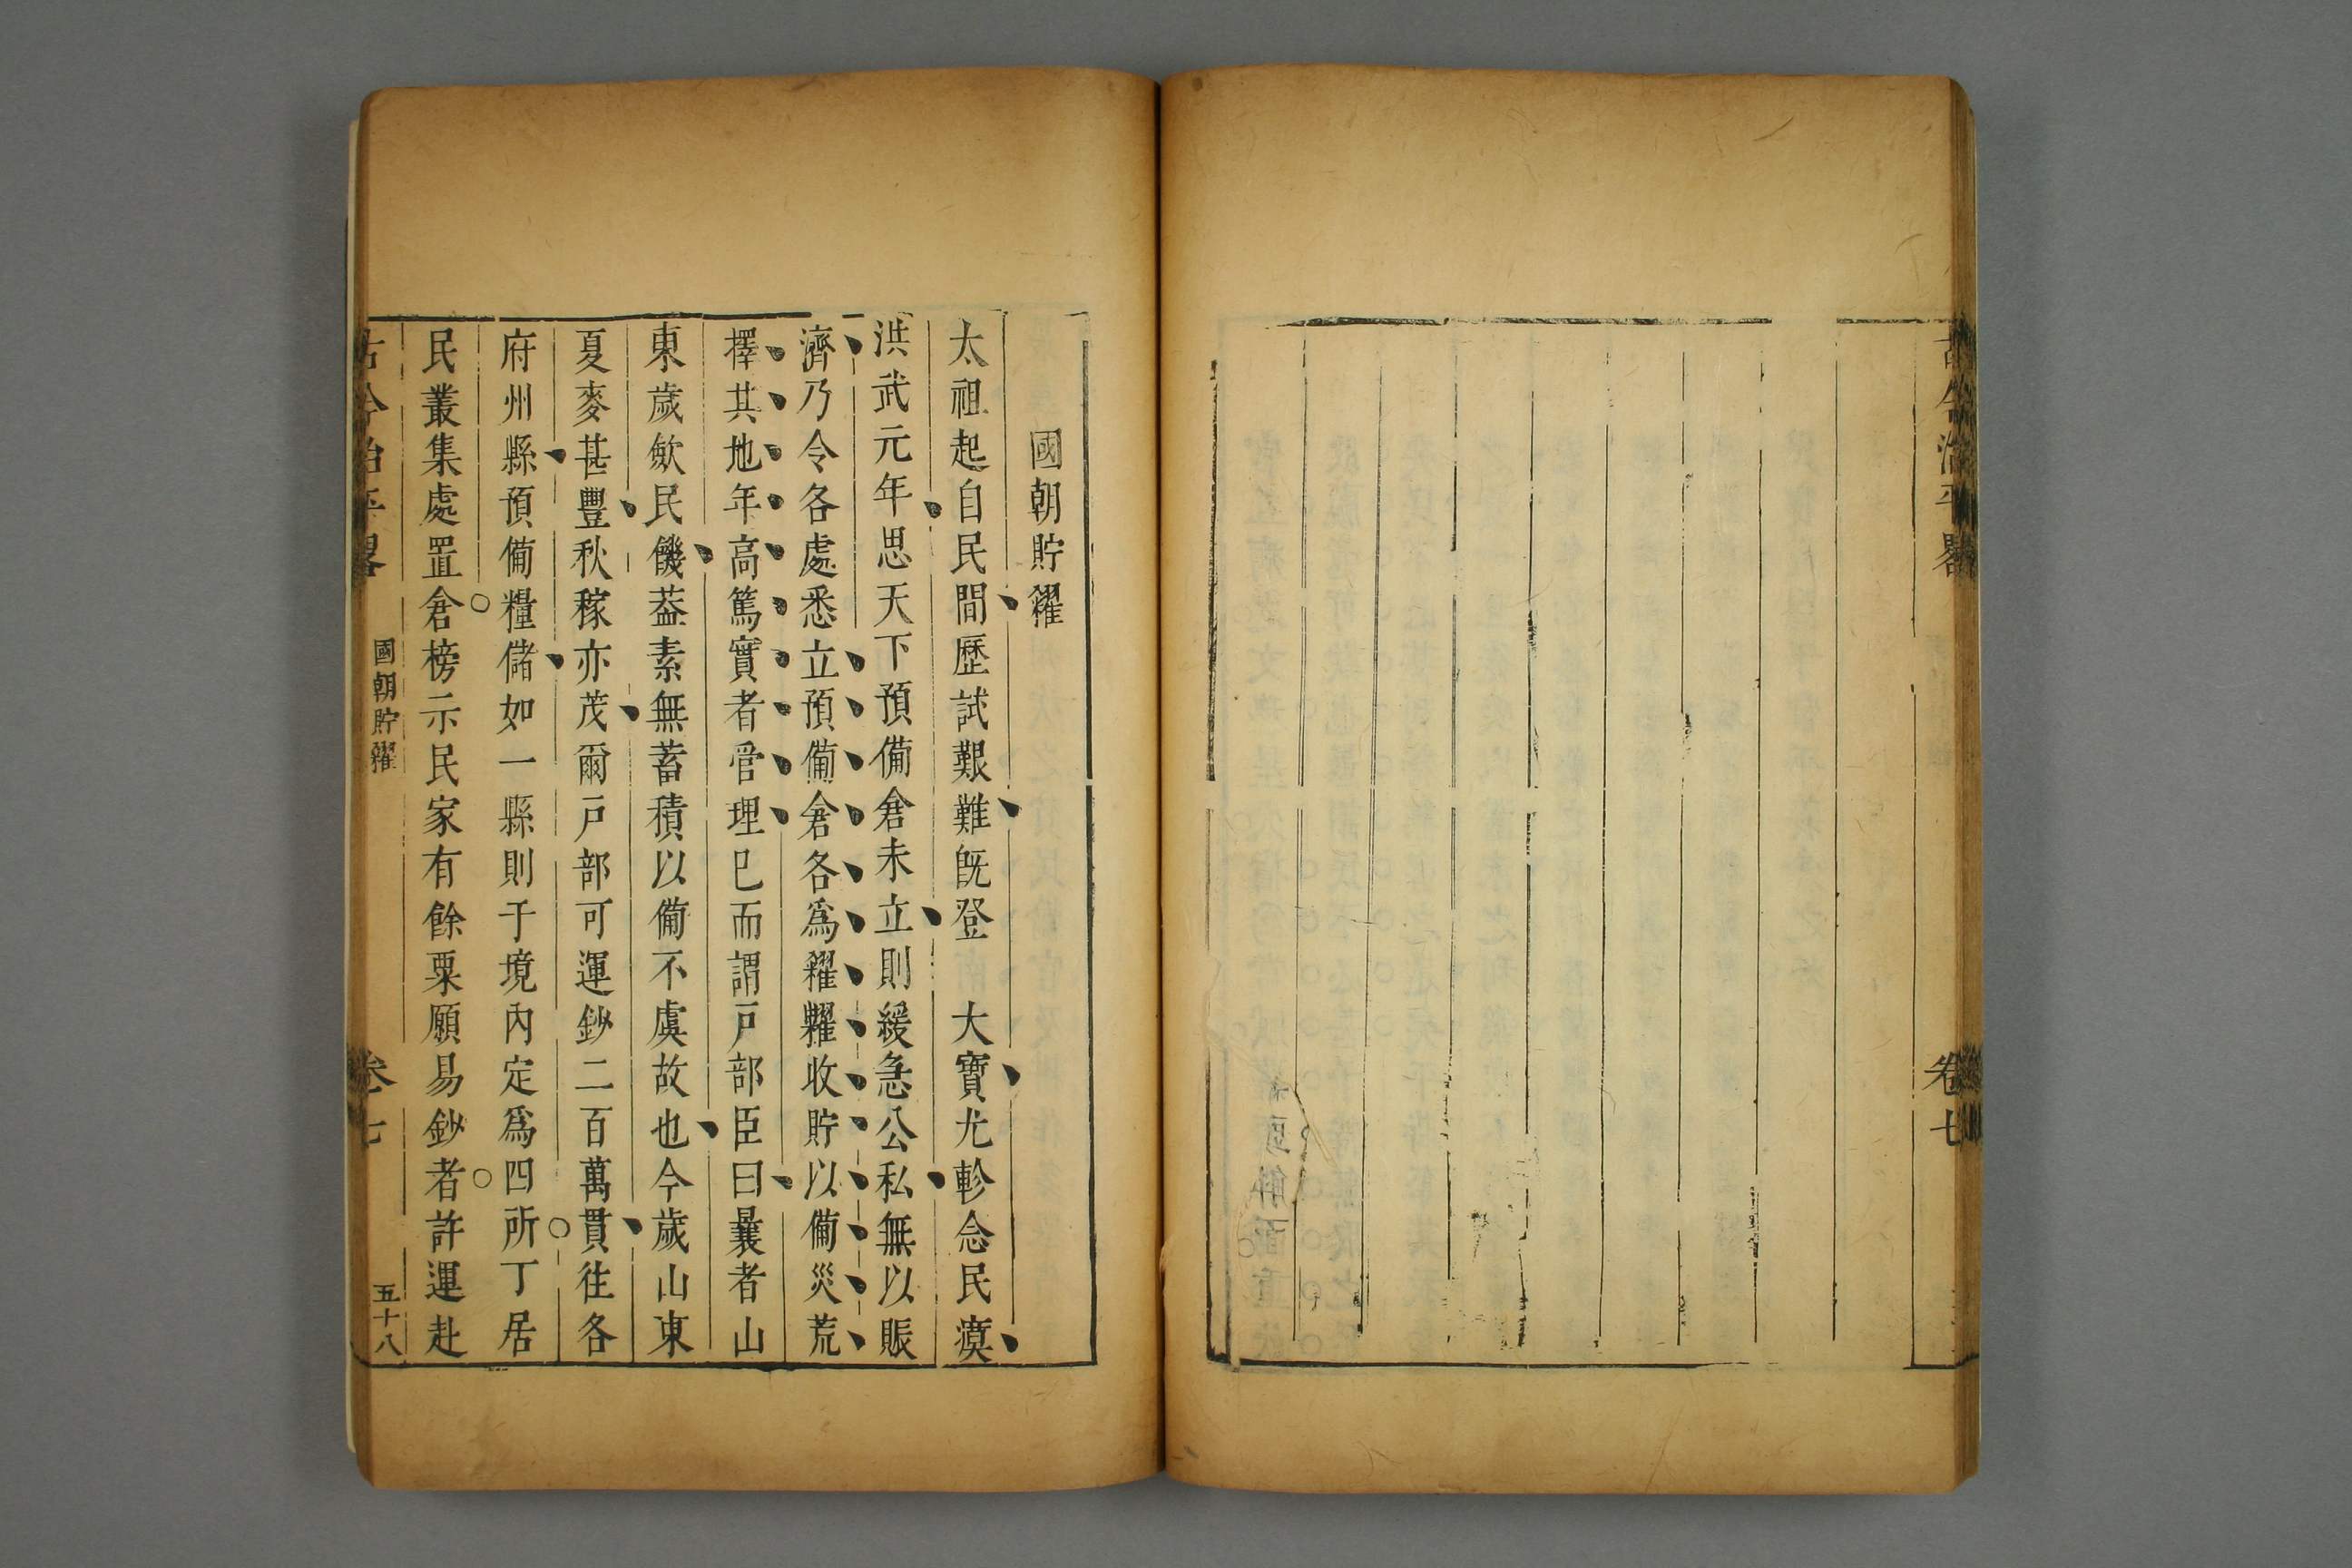 古今治平畧
卷七
國朝貯糴
太祖起自民間歷試艱難旣登 大寶尤軫念民瘼
洪武元年思天下預備倉未立則緩急公私無以賑
濟乃令各處悉立預備倉各爲糴糶收貯以備災荒
擇其地年高篤實者管理已而謂戸部臣曰曩者山
東歲歉民饑葢素無蓄積以備不虞故也今歲山東
夏麥甚豐秋稼亦茂爾戸部可運鈔二百萬貫往各
府州縣預備糧儲如一縣則于境內定爲四所丁居
民叢集處置倉榜示民家有餘粟願易鈔者許運赴
古今治平畧
國朝貯糴
卷七
五十八